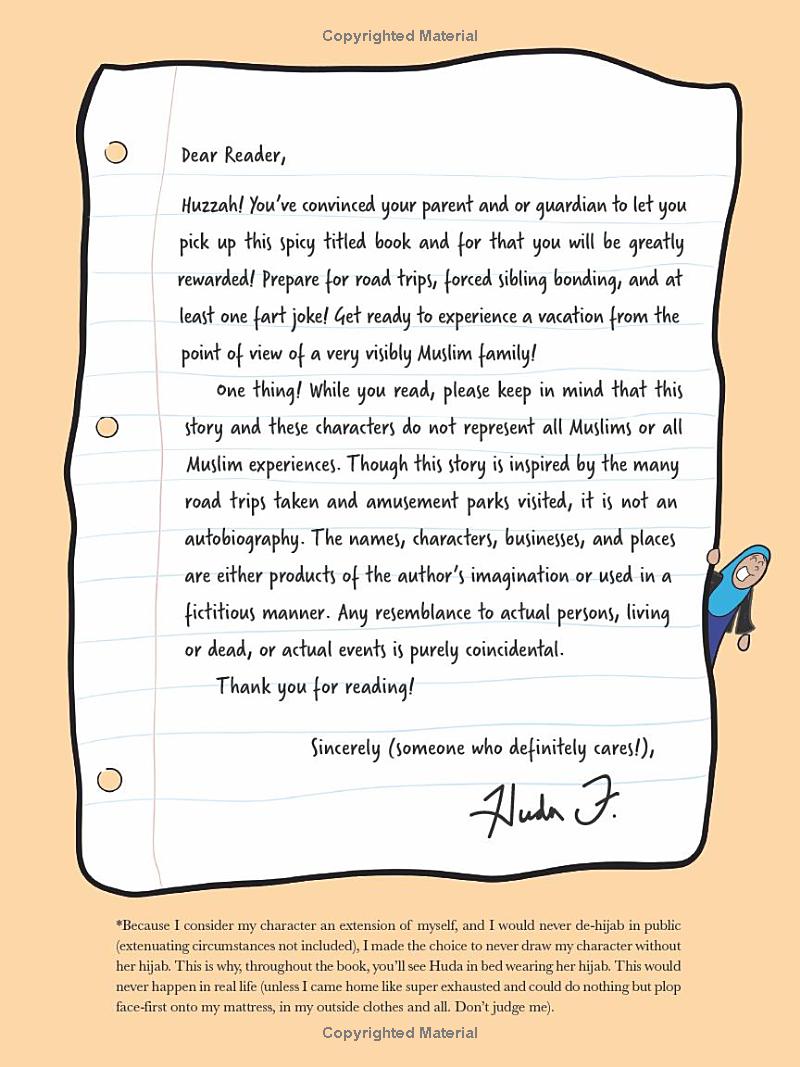 Copyrighted Material
Dear Reader,
Huzzah! You've convinced your parent and or guardian to let you
pick up this spicy titled book and for that you will be greatly
rewarded! Prepare for road trips, forced sibling bonding, and at
least one fart joke! Get ready to experience a vacation from the
point of view of a very visibly Muslim family!
One thing! While you read, please keep in mind that this
story and these characters do not represent all Muslims or all
Muslim experiences. Though this story is inspired by the many
road trips taken and amusement parks visited, it is not an
autobiography. The names, characters, businesses, and places
are either products of the author's imagination or used in a
fictitious manner. Any resemblance to actual persons, living
or dead, or actual events is purely coincidental.
Thank you for reading!
Sincerely (someone who definitely cares!),
Huda F.
*Because I consider my character an extension of myself, and I would never de-hijab in public
(extenuating circumstances not included), I made the choice to never draw my character without
her hijab. This is why, throughout the book, you'll see Huda in bed wearing her hijab. This would
never happen in real life (unless I came home like super exhausted and could do nothing but plop
face-first onto my mattress, in my outside clothes and all. Don't judge me).
Copyrighted Material